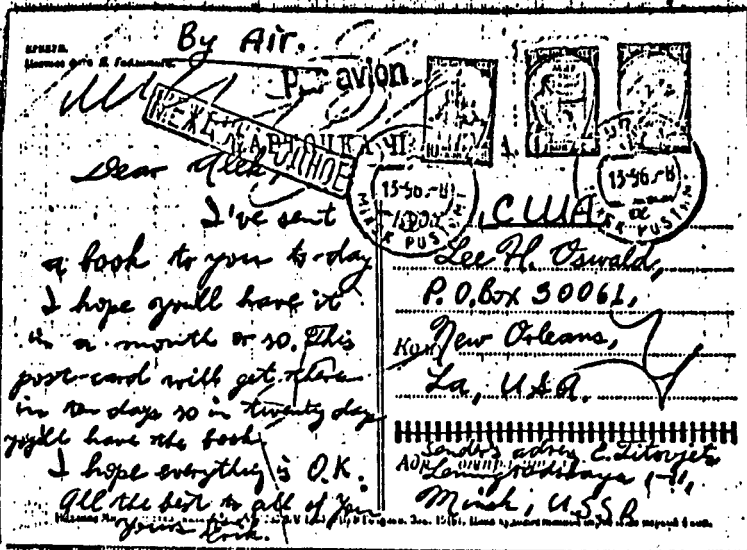 By Air.
Par avion
МЕЖДУНАРОДНОЕ
КАРТОЧКА
Dear Alek,
I've sent
a book to you to-day
I hope you'll have it
in a month or so. This
post-card will get there
in ten days so in twenty day
you'll have the book.
I hope everything is O.K.
All the best to all of you
Yours
США
Lee H. Oswald,
P.O. Box 30061,
New Orleans,
La, U.S.A.
Sender's adress E. Titovjets
Minsk, USSR
MINSK